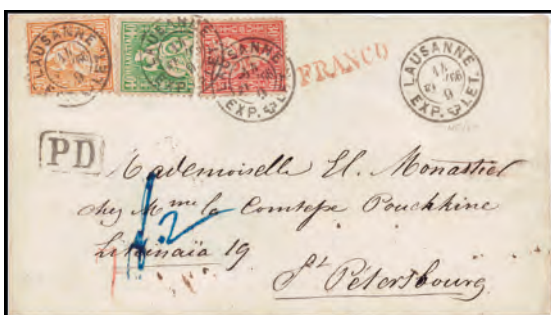 LAUSANNE EXP. LET.
LAUSANNE EXP. LET.
LAUSANNE EXP. LET.
FRANCO
LAUSANNE EXP. LET.
PD
Mademoiselle H. Monastier
chez Mme la Comtesse Pouchkine
Litinaïa 19
St Pétersbourg